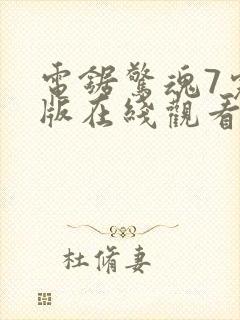 電鋸驚魂7完
版在綫觀看
杜脩妻